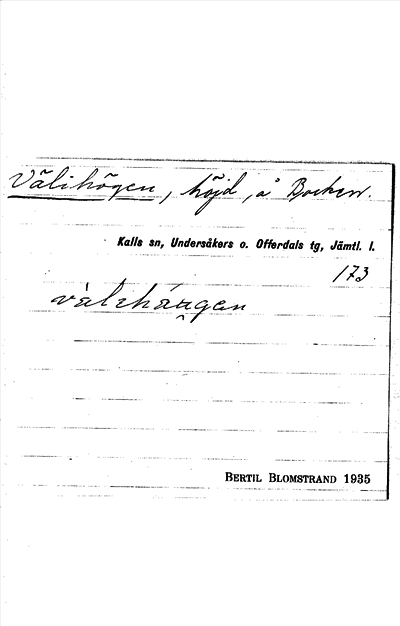 Välihögen, höjd, å Bocken.
Kalls sn, Undersåkers o. Offerdals tg, Jämtl. l.
173
BERTIL BLOMSTRAND 1935